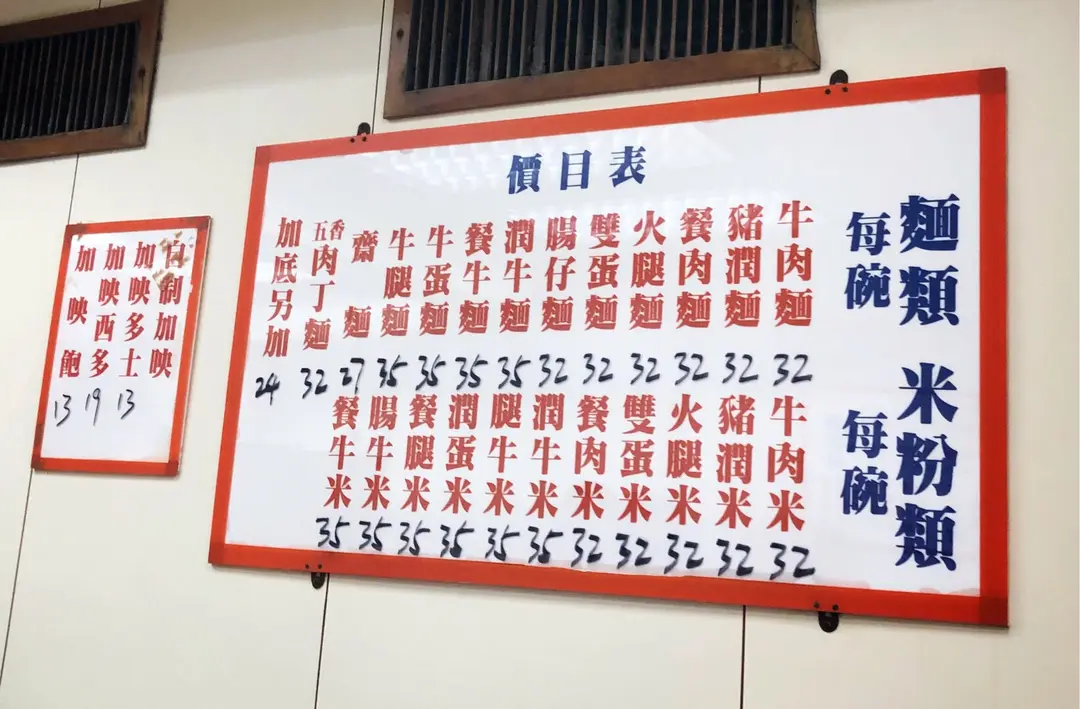 價目表
麵類
每碗
牛肉麵 32
豬潤麵 32
餐肉麵 32
火腿麵 32
雙蛋麵 32
腸仔麵 32
潤牛麵 35
餐牛麵 35
牛蛋麵 35
牛腿麵 35
齋麵 27
五香肉丁麵 32
加底另加 24
米粉類
每碗
牛肉米 32
豬潤米 32
火腿米 32
雙蛋米 32
餐肉米 32
潤牛米 35
腿牛米 35
潤蛋米 35
餐腿米 35
腸牛米 35
餐牛米 35
自制加映
加映多士 13
加映西多 19
加映飽 13